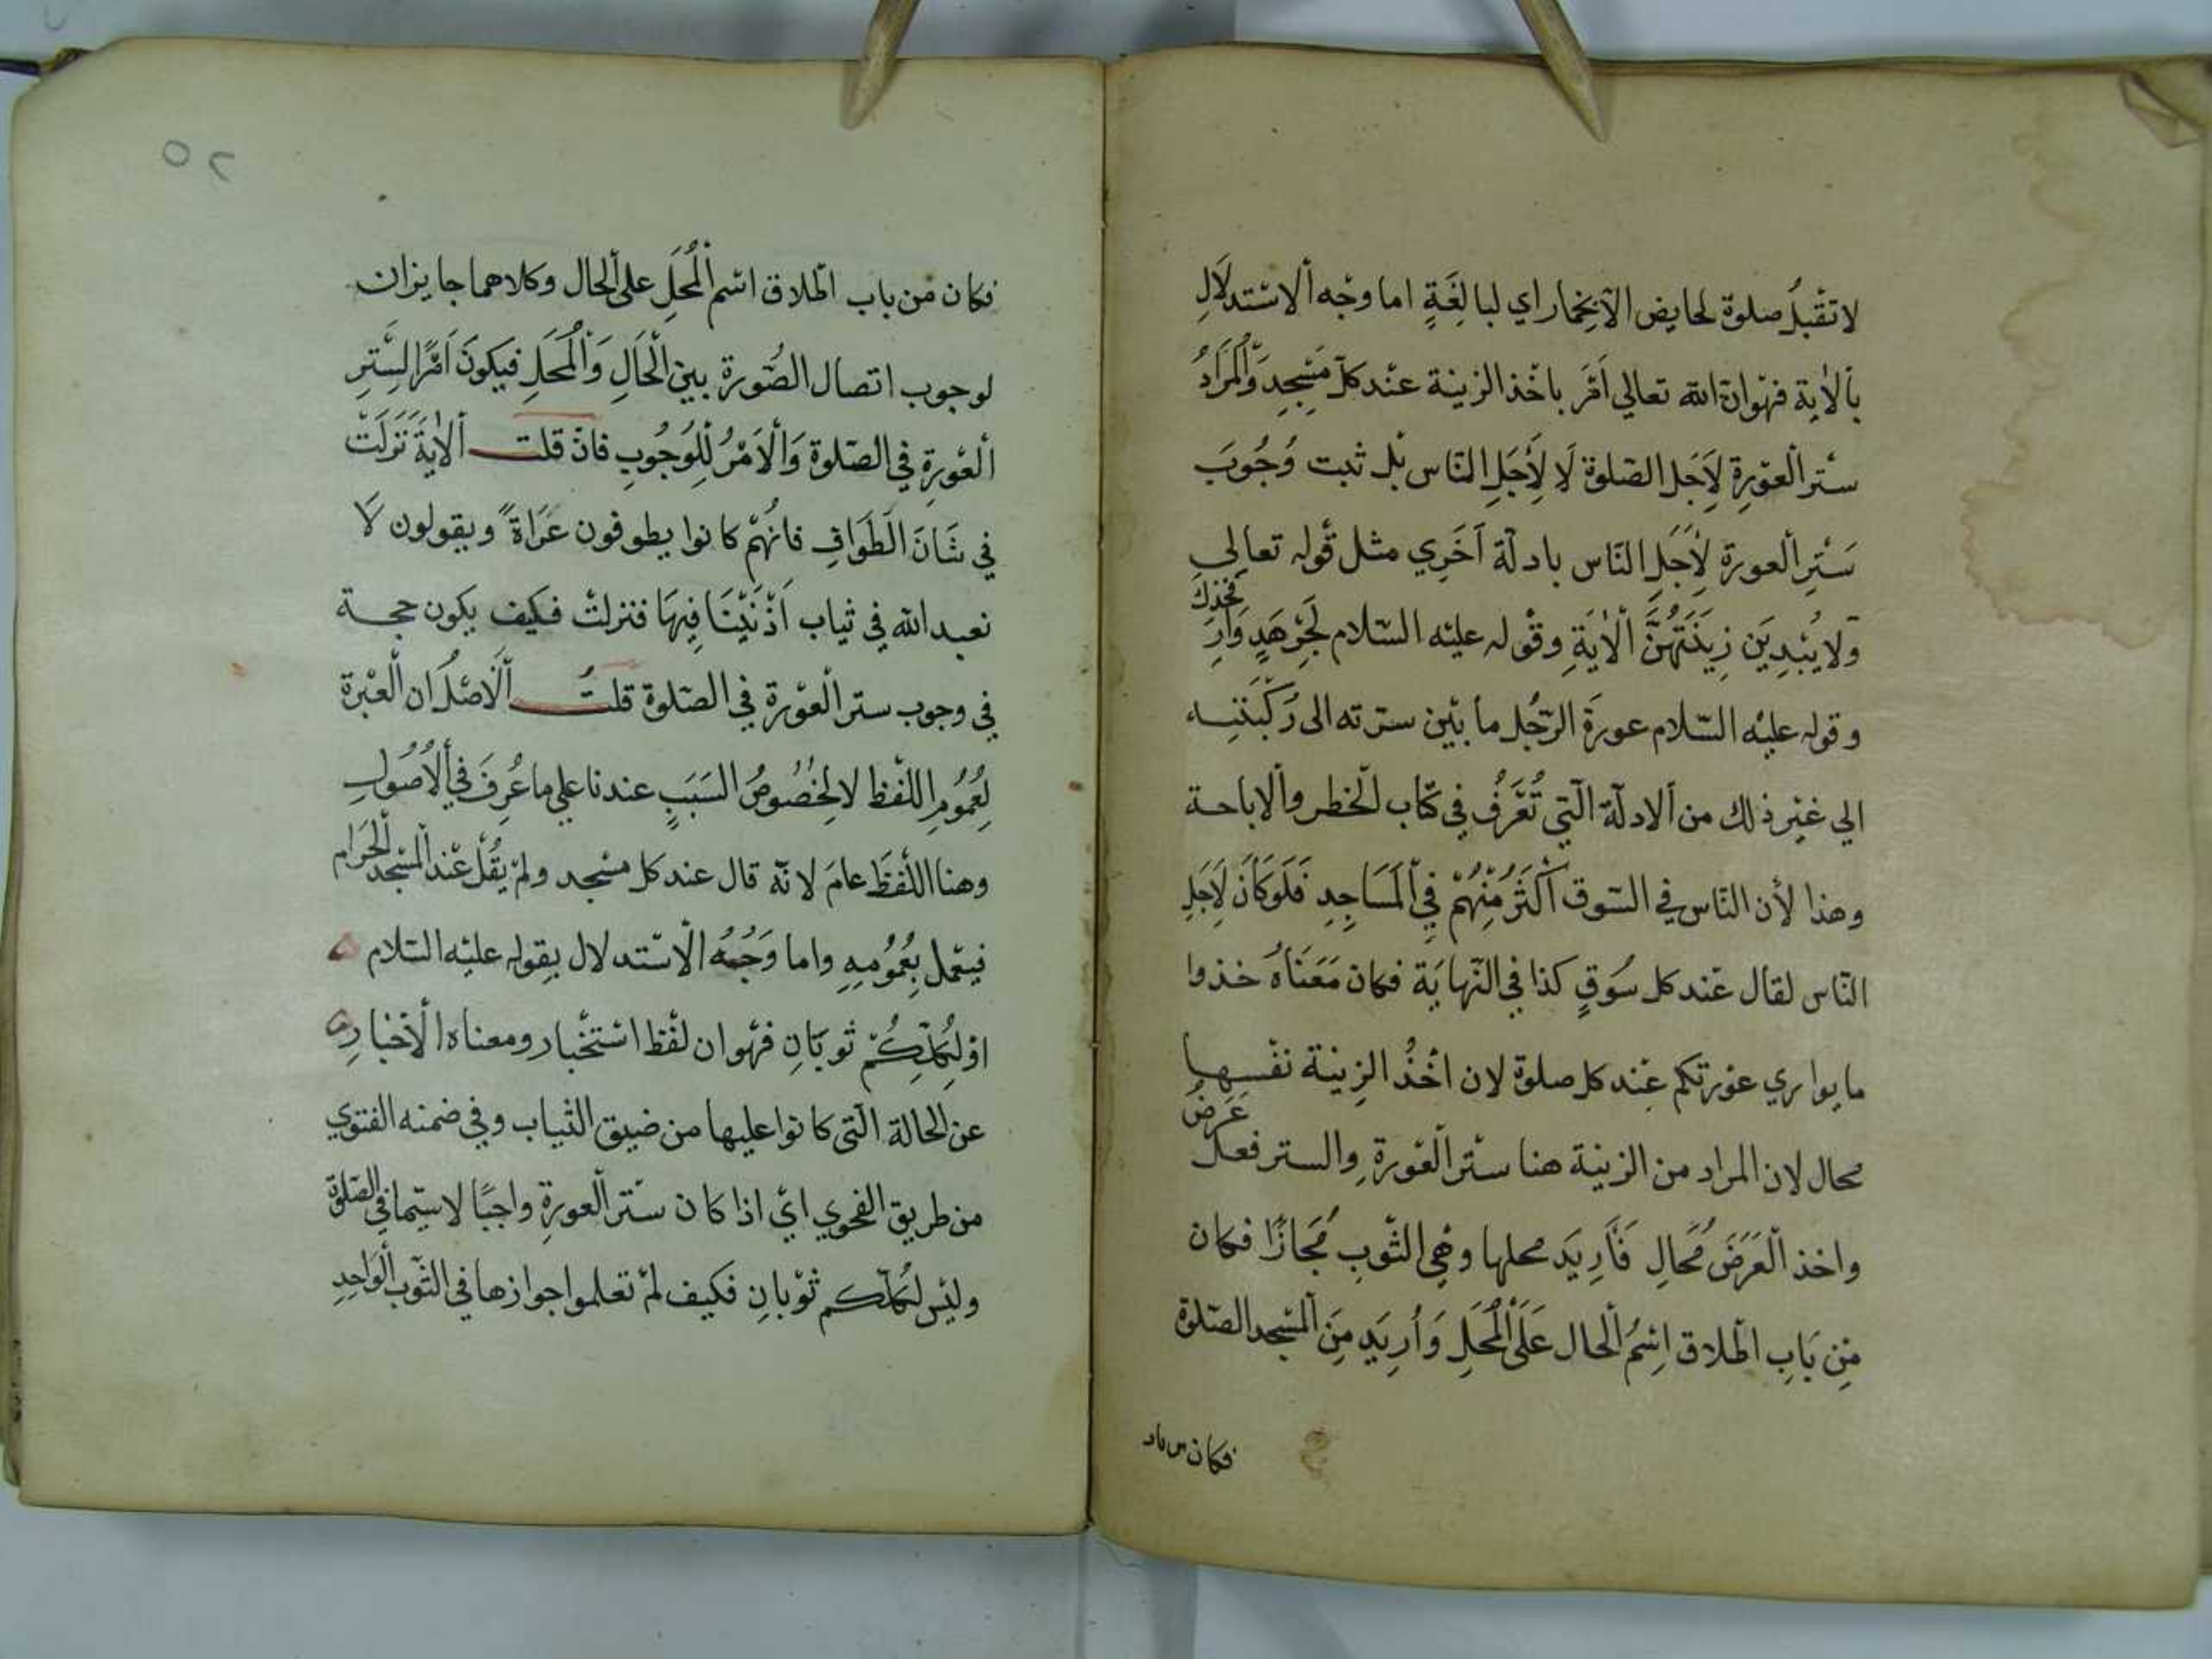 لا تقبل صلوة لحايض الا بخمار اي لبالغة اما وجه الاستدلال
بالاية فهو ان الله تعالي امر باخذ الزينة عند كل مسجد والمراد
ستر العورة لاجل الصلوة لا لاجل الناس بل ثبت وجوب
ستر العورة لاجل الناس بادلة اخري مثل قوله تعالي
ولا يبدين زينتهن الاية وقوله عليه السلام لجرهد وار فخذك
وقوله عليه السلام عورة الرجل ما بين سرته الى ركبتيه
الي غير ذلك من الادلة التي تعرف في كتاب الخطر والاباحة
وهذا لأن الناس في السوق أكثر منهم في المساجد فلو كان لاجل
الناس لقال عند كل سوق كذا في النهاية فكان معناه خذوا
ما يواري عورتكم عند كل صلوة لان اخذ الزينة نفسها
محال لان المراد من الزينة هنا ستر العورة والستر فعل عرض
واخذ العرض محال فأريد محلها وهي الثوب مجازا فكان
من باب اطلاق اسم الحال على المحل وأريد من المسجد الصلوة
فكان من باب
٥٢
فكان من باب اطلاق اسم المحل على الحال وكلاهما جايزان
لوجوب اتصال الصورة بين الحال والمحل فيكون امرا لستر
العورة في الصلوة والامر للوجوب فان قلت الاية نزلت
في شان الطواف فانهم كانوا يطوفون عراة ويقولون لا
نعبد الله في ثياب اذنبنا فيها فنزلت فكيف يكون حجة
في وجوب ستر العورة في الصلوة قلت الاصل ان العبرة
لعموم اللفظ لا لخصوص السبب عندنا علي ما عرف في الاصول
وهنا اللفظ عام لانه قال عند كل مسجد ولم يقل عند المسجد الحرام
فيعمل بعمومه واما وجه الاستدلال بقوله عليه السلام
او لكلكم ثوبان فهو ان لفظ استخبار ومعناه الاخبار
عن الحالة التي كانوا عليها من ضيق الثياب وفي ضمنه الفتوي
من طريق الفحوي اي اذا كان ستر العورة واجبا لا سيما في الصلوة
وليس لكلكم ثوبان فكيف لم تعلموا جوازها في الثوب الواحد